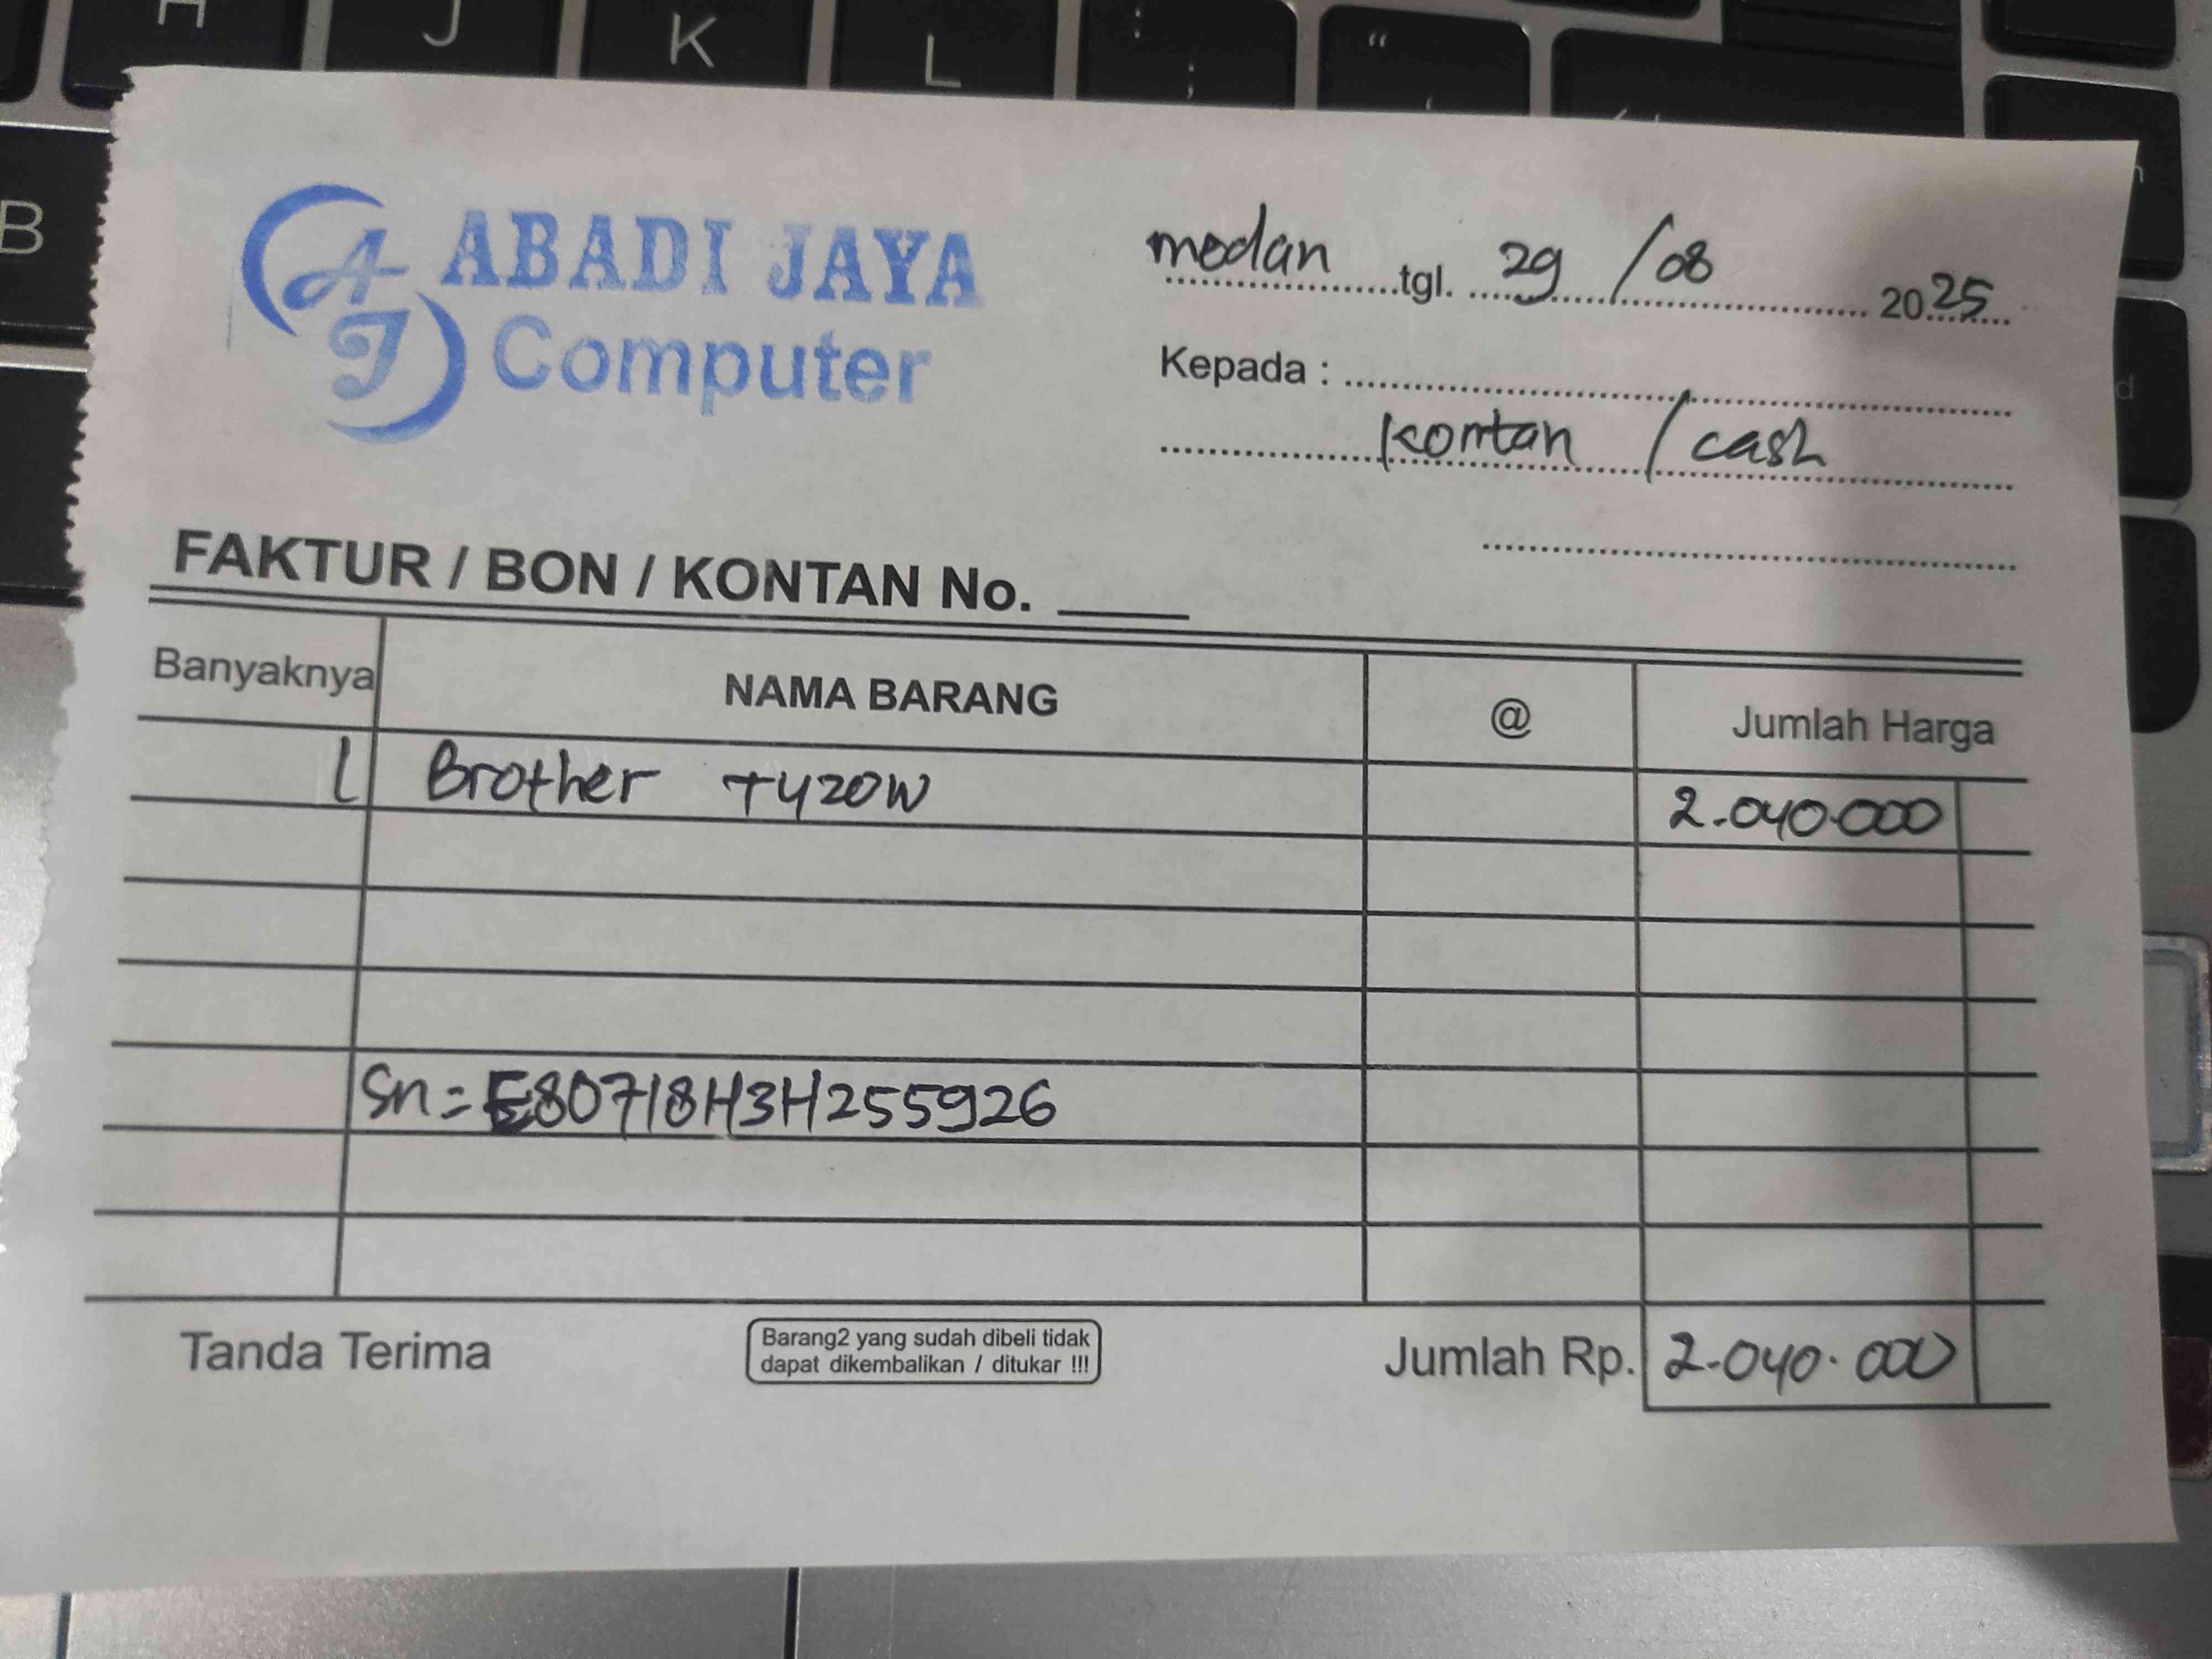 H J K L : ; " '
B
ABADI JAYA
AJ Computer
medan tgl. 29 / 08 2025
Kepada :
kontan / cash
FAKTUR / BON / KONTAN No.
Banyaknya NAMA BARANG @ Jumlah Harga
1 Brother T420W 2.040.000
Sn = E80718H3H255926
Tanda Terima
Barang2 yang sudah dibeli tidak
dapat dikembalikan / ditukar !!!
Jumlah Rp. 2.040.000